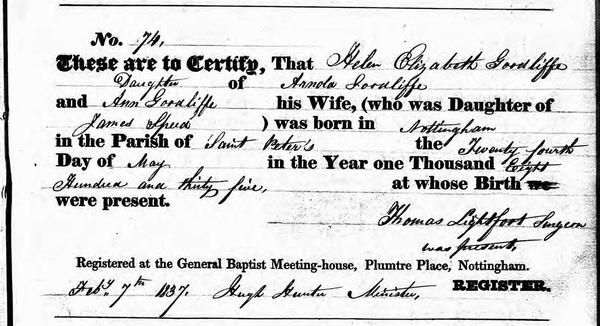 No. 74,
These are to Certify, That Helen Elizabeth Goodliffe
Daughter of Arnold Goodliffe
and Ann Goodliffe his Wife, (who was Daughter of
James Speed ) was born in Nottingham
in the Parish of Saint Peter's the Twenty fourth
Day of May in the Year one Thousand Eight
Hundred and thirty five, at whose Birth we
were present.
Thomas Lightfoot Surgeon
was present,
Registered at the General Baptist Meeting-house, Plumtre Place, Nottingham.
Feby. 7th 1837. Hugh Hunter Minister, REGISTER.